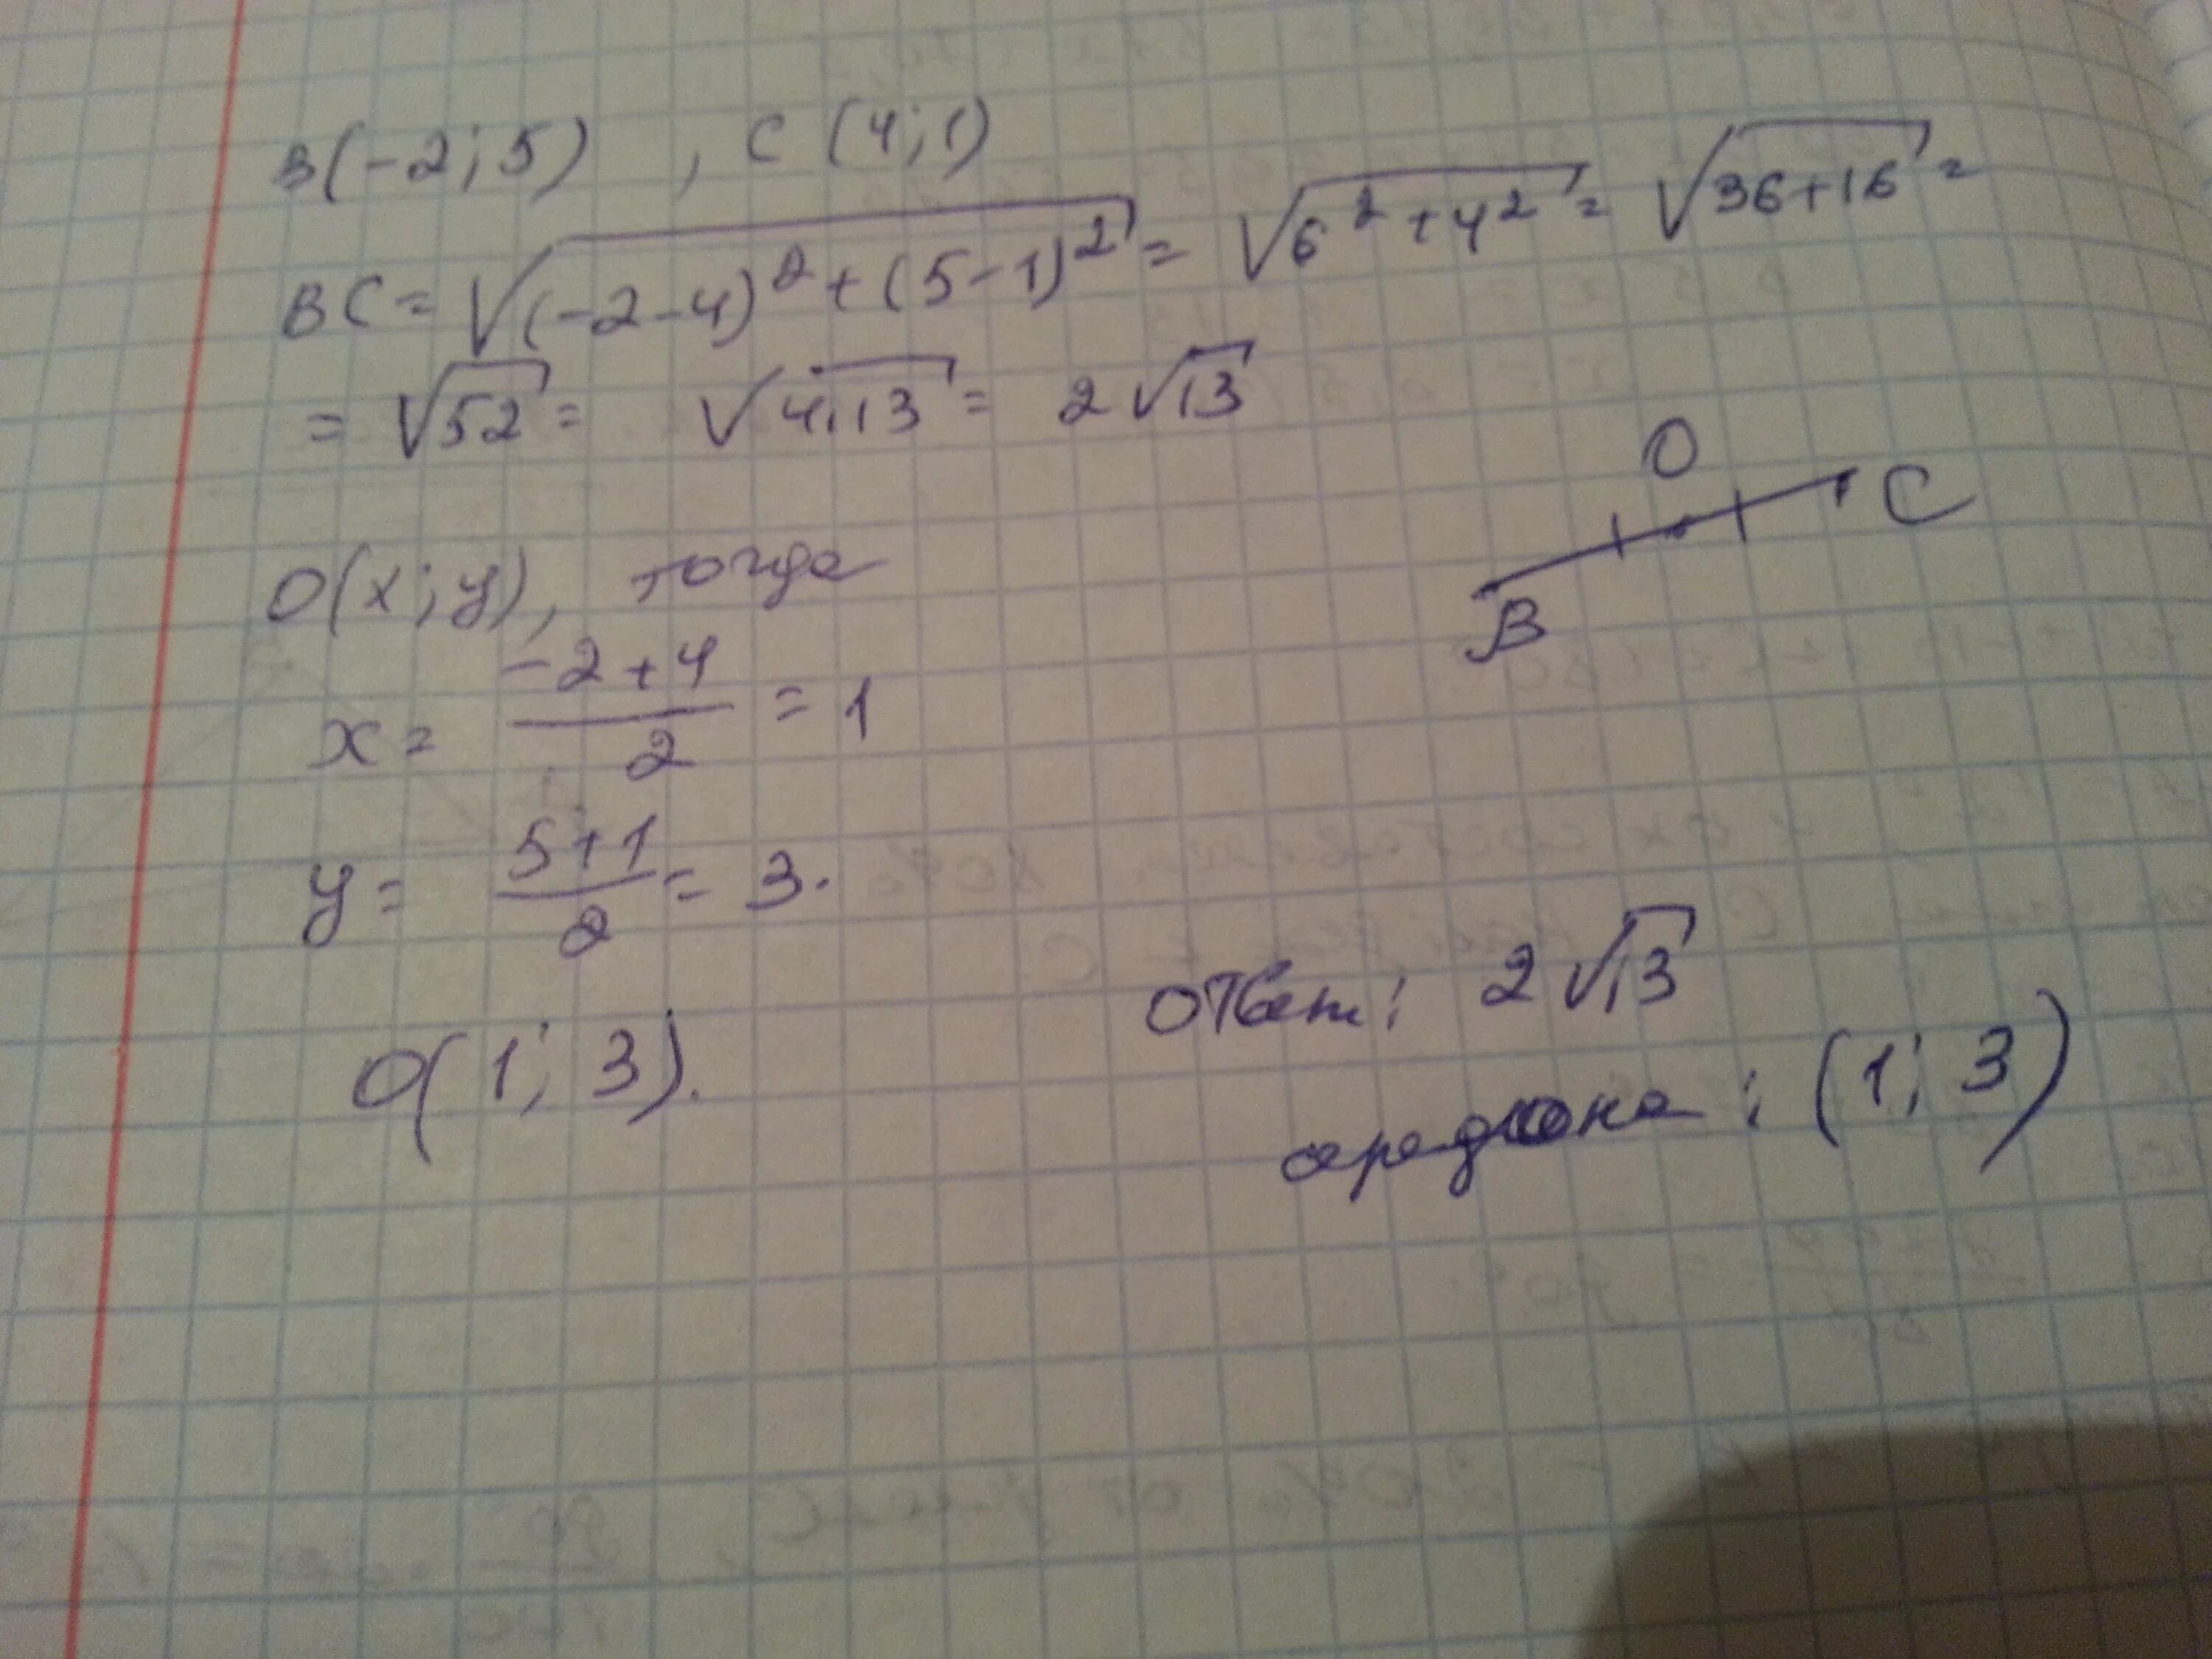 B(-2; 5) , C (4; 1)
BC = √((-2-4)² + (5-1)²) = √(6² + 4²) = √(36+16) =
= √52 = √(4·13) = 2√13
O
C
B
O(x; y), тогда
x = (-2+4)/2 = 1
y = (5+1)/2 = 3.
O(1; 3).
Ответ: 2√13
середина : (1; 3)